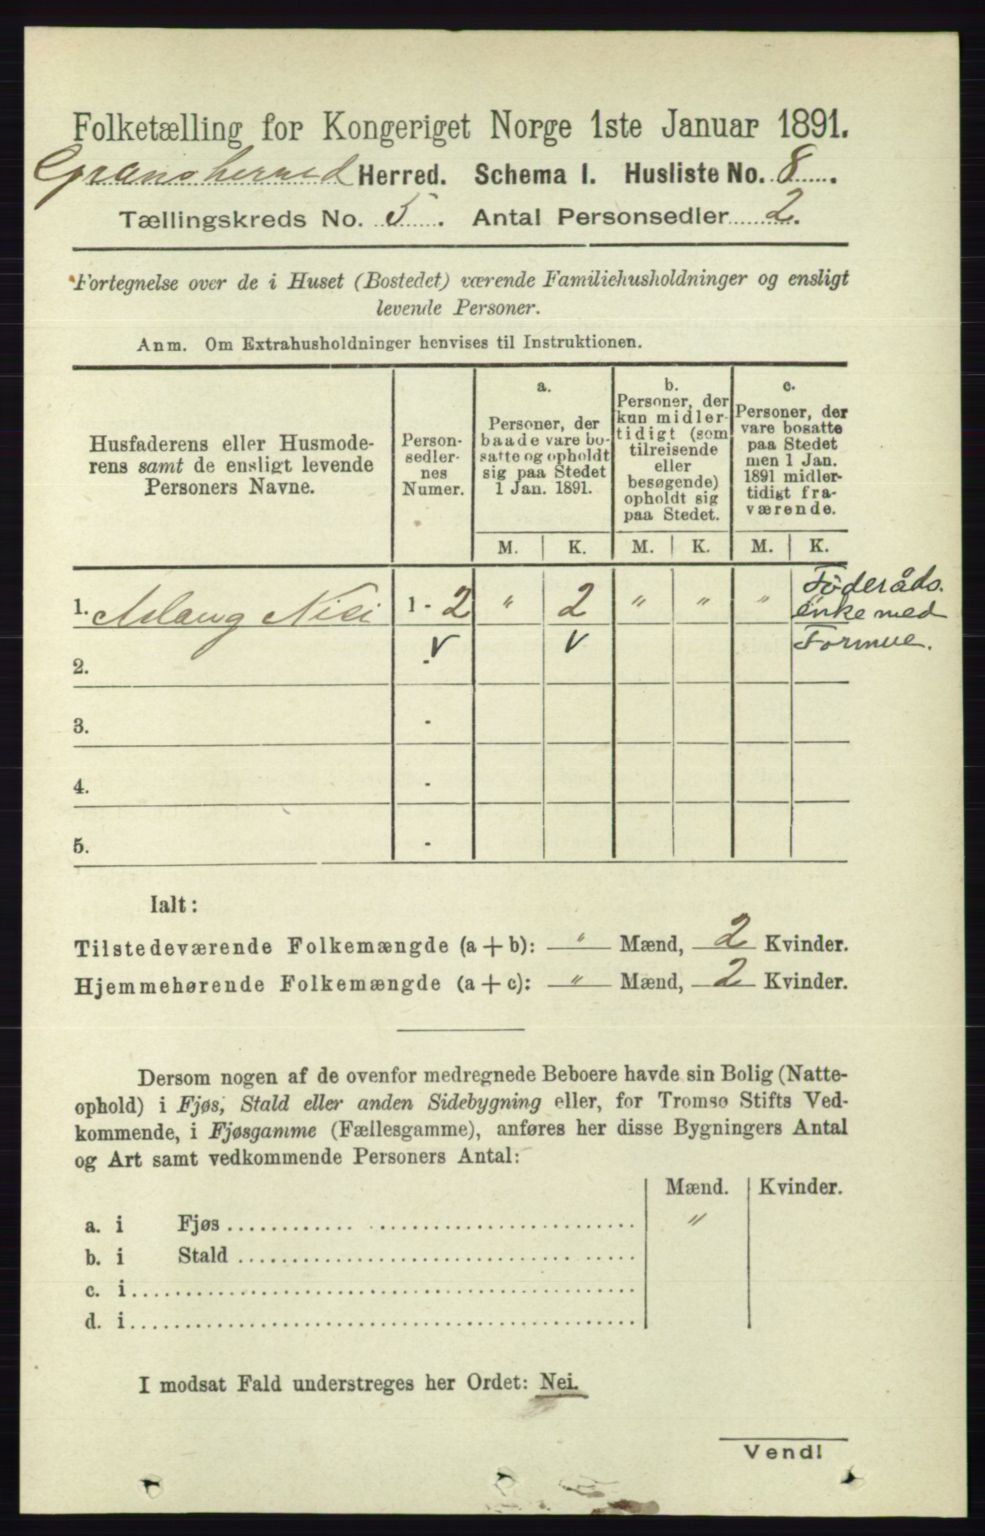 Folketælling for Kongeriget Norge 1ste Januar 1891.
Gransherred Herred. Schema I. Husliste No. 8.
Tællingskreds No. 5. Antal Personsedler 2.
Fortegnelse over de i Huset (Bostedet) værende Familiehusholdninger og ensligt
levende Personer.
Anm. Om Extrahusholdninger henvises til Instruktionen.
Husfaderens eller Husmode-
rens samt de ensligt levende
Personers Navne.
Person-
sedler-
nes
Numer.
a.
Personer, der
baade vare bo-
satte og opholdt
sig paa Stedet
1 Jan. 1891.
b.
Personer, der
kun midler-
tidigt (som
tilreisende
eller
besøgende)
opholdt sig
paa Stedet.
c.
Personer, der
vare bosatte
paa Stedet
men 1 Jan.
1891 midler-
tidigt fra-
værende.
M. K. M. K. M. K.
1. Aslaug 1 - 2 " 2 " " "
Föderåds.
enke med
Formue.
2. - v v
3. -
4. -
5. -
Ialt:
Tilstedeværende Folkemængde (a + b): " Mænd, 2 Kvinder.
Hjemmehørende Folkemængde (a + c): " Mænd, 2 Kvinder.
Dersom nogen af de ovenfor medregnede Beboere havde sin Bolig (Natte-
ophold) i Fjøs, Stald eller anden Sidebygning eller, for Tromsø Stifts Ved-
kommende, i Fjøsgamme (Fællesgamme), anføres her disse Bygningers Antal
og Art samt vedkommende Personers Antal:
Mænd. Kvinder.
a. i Fjøs "
b. i Stald
c. i
d. i
I modsat Fald understreges her Ordet: Nei.
Vend!